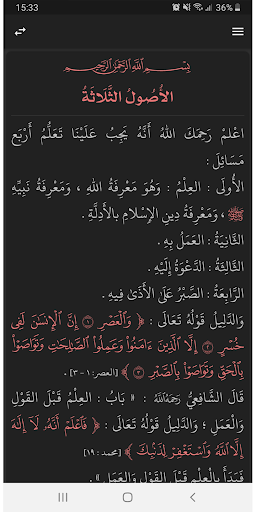 15:33 36%
بِسْمِ اللَّهِ الرَّحْمَنِ الرَّحِيمِ
الأُصُولُ الثَّلَاثَةُ
اعْلَمْ رَحِمَكَ اللهُ أَنَّهُ يَجِبُ عَلَيْنَا تَعَلُّمُ أَرْبَعِ
مَسَائِلَ :
الأُولَى : العِلْمُ : وَهُوَ مَعْرِفَةُ اللهِ ، وَمَعْرِفَةُ نَبِيِّهِ
ﷺ ، وَمَعْرِفَةُ دِينِ الإِسْلَامِ بِالأَدِلَّةِ .
الثَّانِيَةُ : العَمَلُ بِهِ .
الثَّالِثَةُ : الدَّعْوَةُ إِلَيْهِ .
الرَّابِعَةُ : الصَّبْرُ عَلَى الأَذَى فِيهِ .
وَالدَّلِيلُ قَوْلُهُ تَعَالَى : ﴿ وَٱلْعَصْرِ ۝١ إِنَّ ٱلْإِنسَٰنَ لَفِى
خُسْرٍ ۝٢ إِلَّا ٱلَّذِينَ ءَامَنُوا۟ وَعَمِلُوا۟ ٱلصَّٰلِحَٰتِ وَتَوَاصَوْا۟
بِٱلْحَقِّ وَتَوَاصَوْا۟ بِٱلصَّبْرِ ۝٣ ﴾ [العصر: ١ - ٣] .
قَالَ الشَّافِعِيُّ رَحِمَهُ اللَّهُ : « بَابُ : العِلْمُ قَبْلَ القَوْلِ
وَالعَمَلِ ؛ وَالدَّلِيلُ قَوْلُهُ تَعَالَى : ﴿ فَٱعْلَمْ أَنَّهُۥ لَآ إِلَٰهَ
إِلَّا ٱللَّهُ وَٱسْتَغْفِرْ لِذَنۢبِكَ ﴾ [محمد: ١٩] .
فَبَدَأَ بِالْعِلْمِ قَبْلَ القَوْلِ وَالعَمَلِ » .